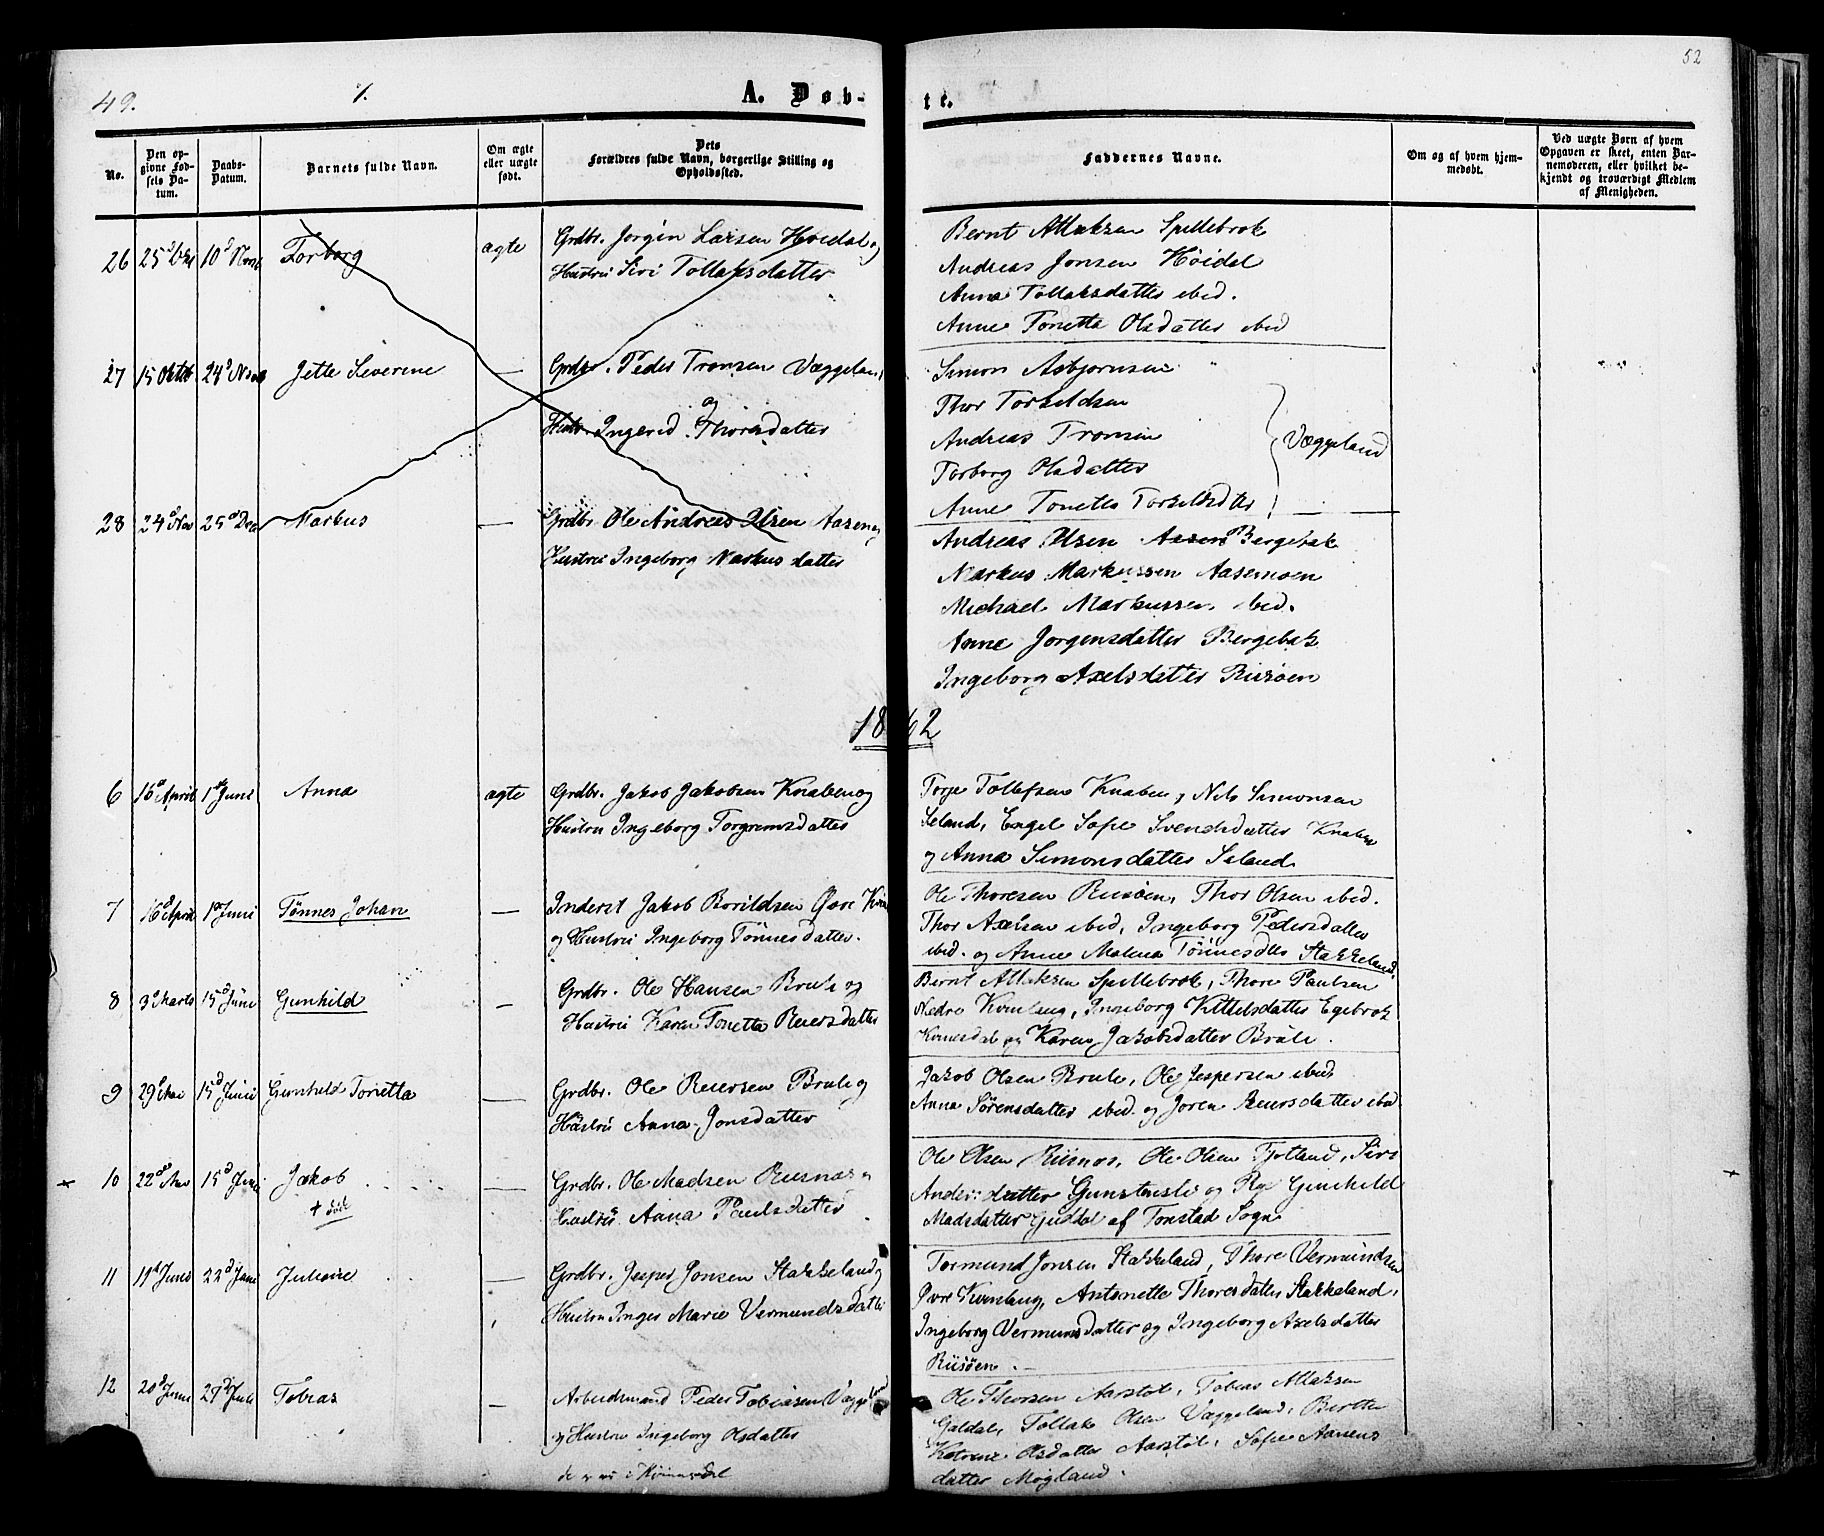 49.
52
A. Døb-
te.
No.
Den op-
givne Fød-
sels Da-
tum.
Daabs-
Datum.
Barnets fulde Navn.
Om ægte
eller uægte
født.
Dets
Forældres fulde Navn, borgerlige Stilling og
Opholdssted.
Faddernes Navne.
Om og af hvem hjem-
medøbt.
Ved uægte Børn af hvem
Opgaven er skeet, enten Bar-
nemoderen, eller hvilket be-
kjendt og troværdigt Medlem
af Menigheden.
26 25d 10d Novb Torborg ægte Grdbr. Jørgen Larsen Høidal og
Hustru Siri Tollaksdatter
Bernt Atlaksen Spillebrok
Andreas Jonsen Høidal
Anna Tollaksdatter ibid.
Anne Tonetta Olsdatter ibid
27 15 Oktob 24d Nov Jette Severine — Grdbr. Peder Tronsen Væggeland
og
Hustr. Ingerid Thoresdatter
Simon Asbjørnsen
Thor Torkildsen
Andreas Tronsen
Torborg Olsdatter
Anne Tonette Torkildsdtr
Væggeland
28 24d Nov 25d Dec Markus — Grdbr. Ole Andreas Olsen Aasen og
Hustru Ingeborg Markusdatter
Andreas Olsen Aasen Bergebak
Markus Markussen Aasemoen
Michael Markussen ibid.
Anne Jørgensdatter Bergebak
Ingeborg Axelsdatter Risøen
1862
6 16d April 1ste Juni Anna ægte Grdbr. Jakob Jakobsen Knaben og
Hustru Ingeborg Torgrimsdatter
Torje Tollefsen Knaben, Nils Simonsen
Seland, Engel Sofie Svendsdatter Knaben
og Anna Simonsdatter Seland
7 16d April 1ste Juni Tønnes Johan — Inderst Jakob Borildsen Øvre
og Hustru Ingeborg Tønnesdatter.
Ole Thoresen Risøen, Thor Olsen ibid.
Thor Axelsen ibid, Ingeborg Pedersdatter
ibid. og Anne Malena Tønnesdtr Stakkeland,
8 3d Marts 15d Juni Gunhild — Grdbr. Ole Hansen Brule og
Hustru Karen Tonetta Reiersdatter
Bernt Atlaksen Spillebrok, Thore Paulsen
Nedre Kvinlaug, Ingeborg Kittelsdatter Egebrok
Kvinesdal og Karen Jakobsdatter Brule.
9 29d Mai 15d Juni Gunhild Tonetta — Grdbr. Ole Reiersen Brule og
Hustru Anna Jonsdatter
Jakob Olsen Brule, Ole Jespersen ibid,
Anna Sørensdatter ibid. og Joren Reiersdatter ibid
10 22d Mai 15d Juni Jakob — Grdbr. Ole Madsen Risnæs og
+ død
Hustru Anna Paulsdatter
Ole Olsen Risnes, Ole Olsen Fjotland, Siri
Andersdatter Gunstensli og Gunhild
Madsdatter Guddal af Tonstad Sogn
11 11d Juni 22d Juni Juliane — Grdbr. Jesper Jonsen Stakkeland og
Hustru Inger Marie Vermundsdatter
Tormund Jonsen Stakkeland, Thore Vermundsen
Øvre Kvinlaug, Antonette Thoresdatter Stakkeland,
Ingeborg Vermundsdatter og Ingeborg Axelsdatter
Risøen
12 20d Juni 27d Juli Tobias — Arbeidsmand Peder Tobiasen Væggeland
og Hustru Ingeborg Olsdatter
Kvinesdal
Ole Thorsen Aarstøl, Tobias Atlaksen
Galdal, Tollak Olsen Væggeland, Berthe
Katrine Olsdatter Aarstøl, Sofie Aanens
datter Mygland.